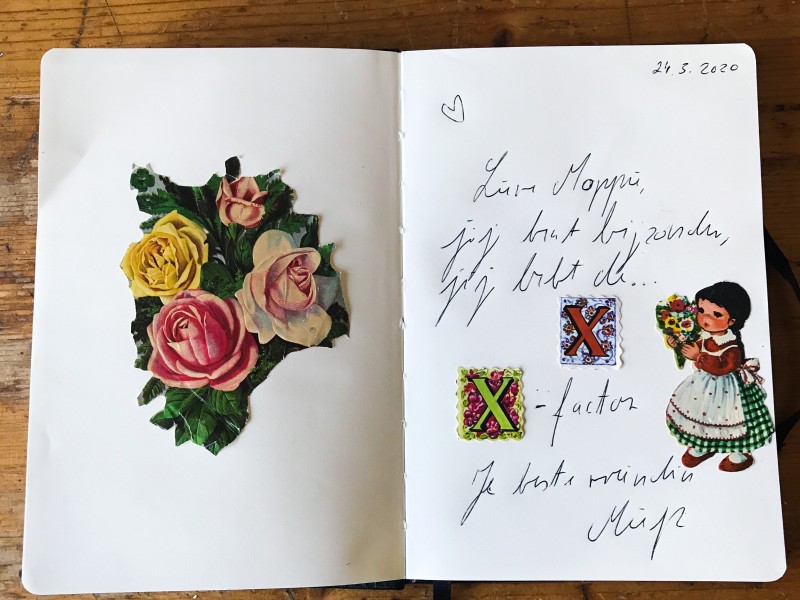 24.3.2020
Lieve Moppie,
jij bent bijzonder,
jij hebt de...
X
X -factor
Je beste vriendin